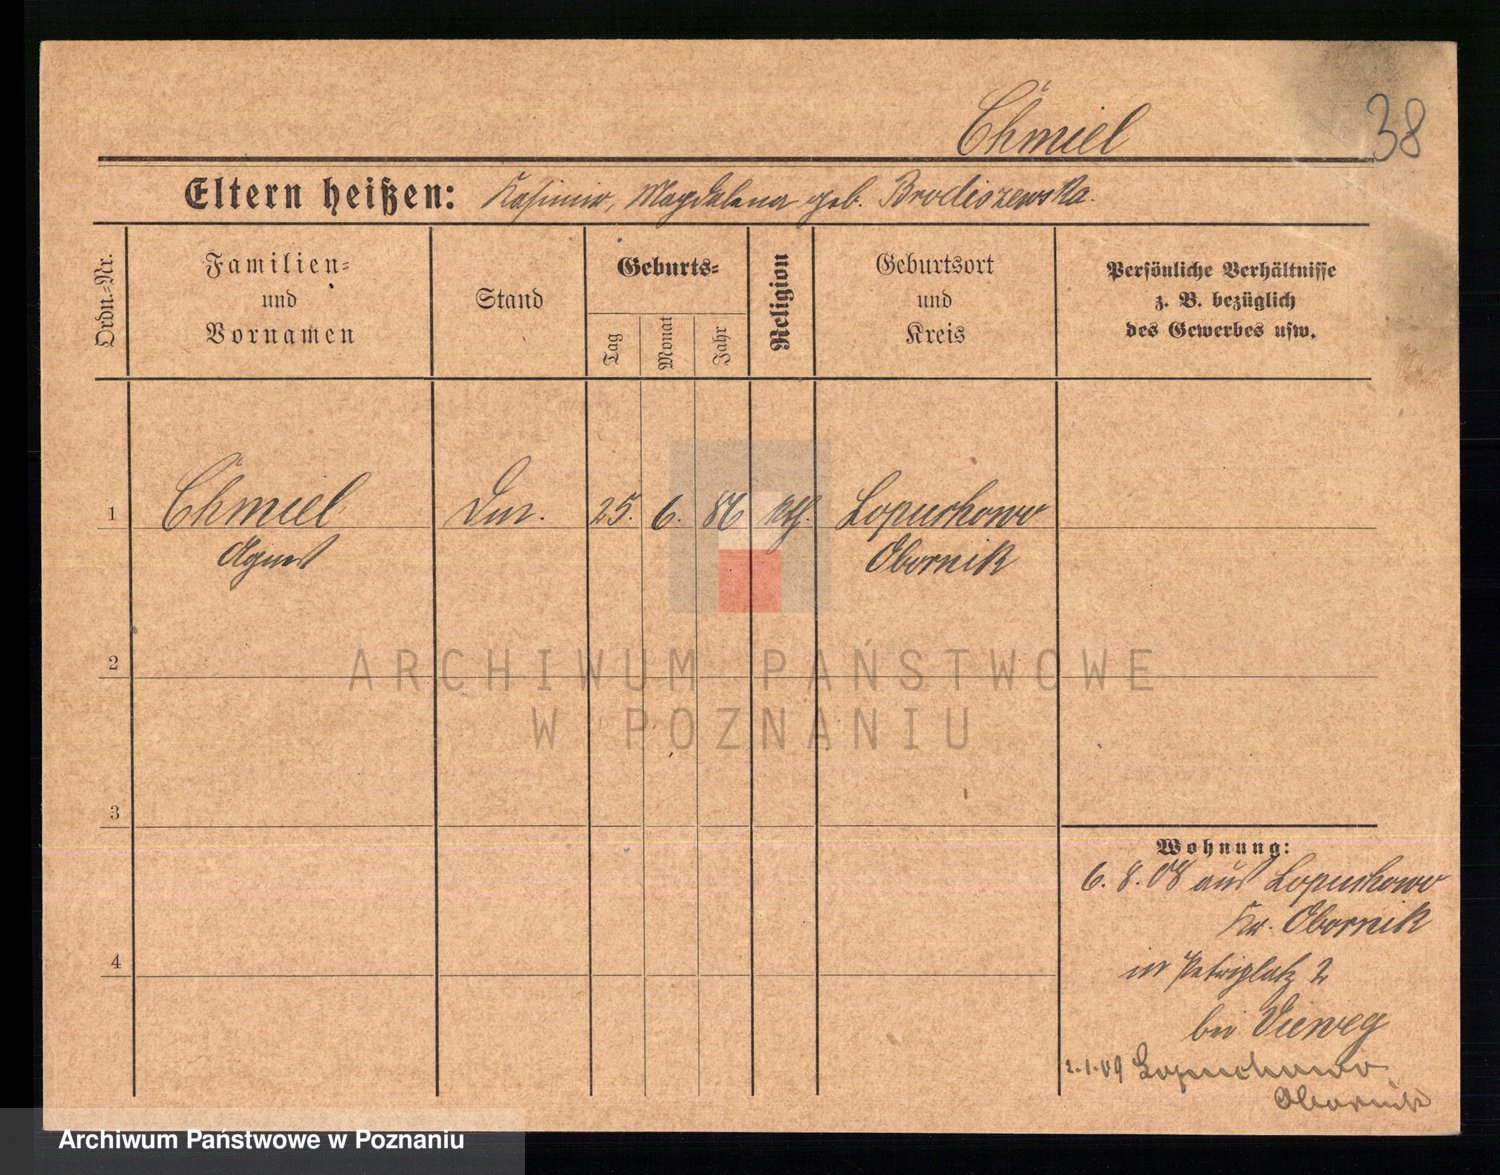 38
Chmiel
Eltern heißen: Kasimir, Magdalena geb. Brodiszewska.
Ordn.-Nr.
Familien-
und
Vornamen
Stand
Geburts-
Tag
Monat
Jahr
Religion
Geburtsort
und
Kreis
Persönliche Verhältnisse
z. B. bezüglich
des Gewerbes usw.
1 Chmiel 25. 6. 86 kth. Lopuchowo
Agnes Obornik
ARCHIWUM PAŃSTWOWE
W POZNANIU
2
3
4
Wohnung:
6.8.08 aus Lopuchowo
Kr. Obornik
in Petriplatz 2
bei Vieweg
2.1.09 Lopuchowo
Obornik
Archiwum Państwowe w Poznaniu